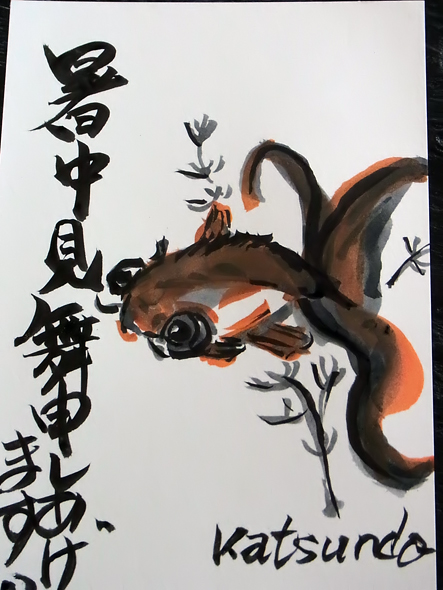 暑中見舞申しあげ
ます
Katsundo